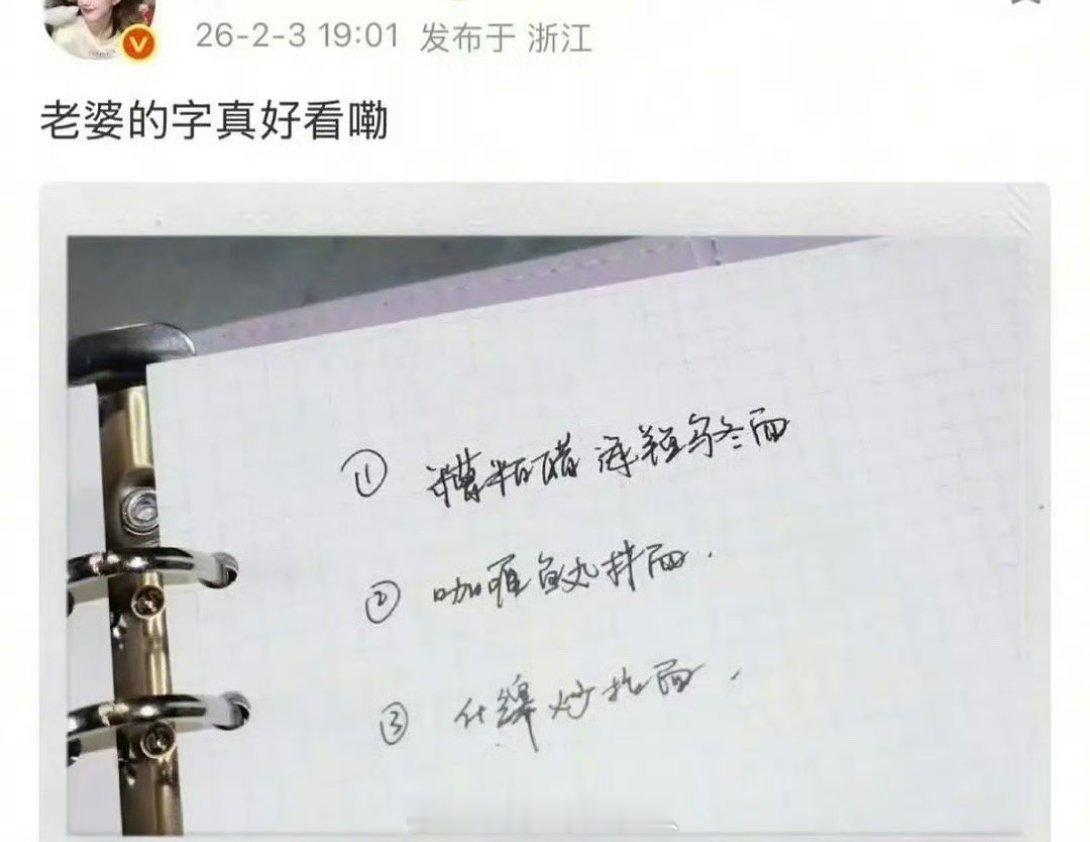 26-2-3 19:01 发布于 浙江
老婆的字真好看嘞
① 糟粕醋海鲜乌冬面
② 咖喱鱼丸拌面.
③ 什锦炒拉面.